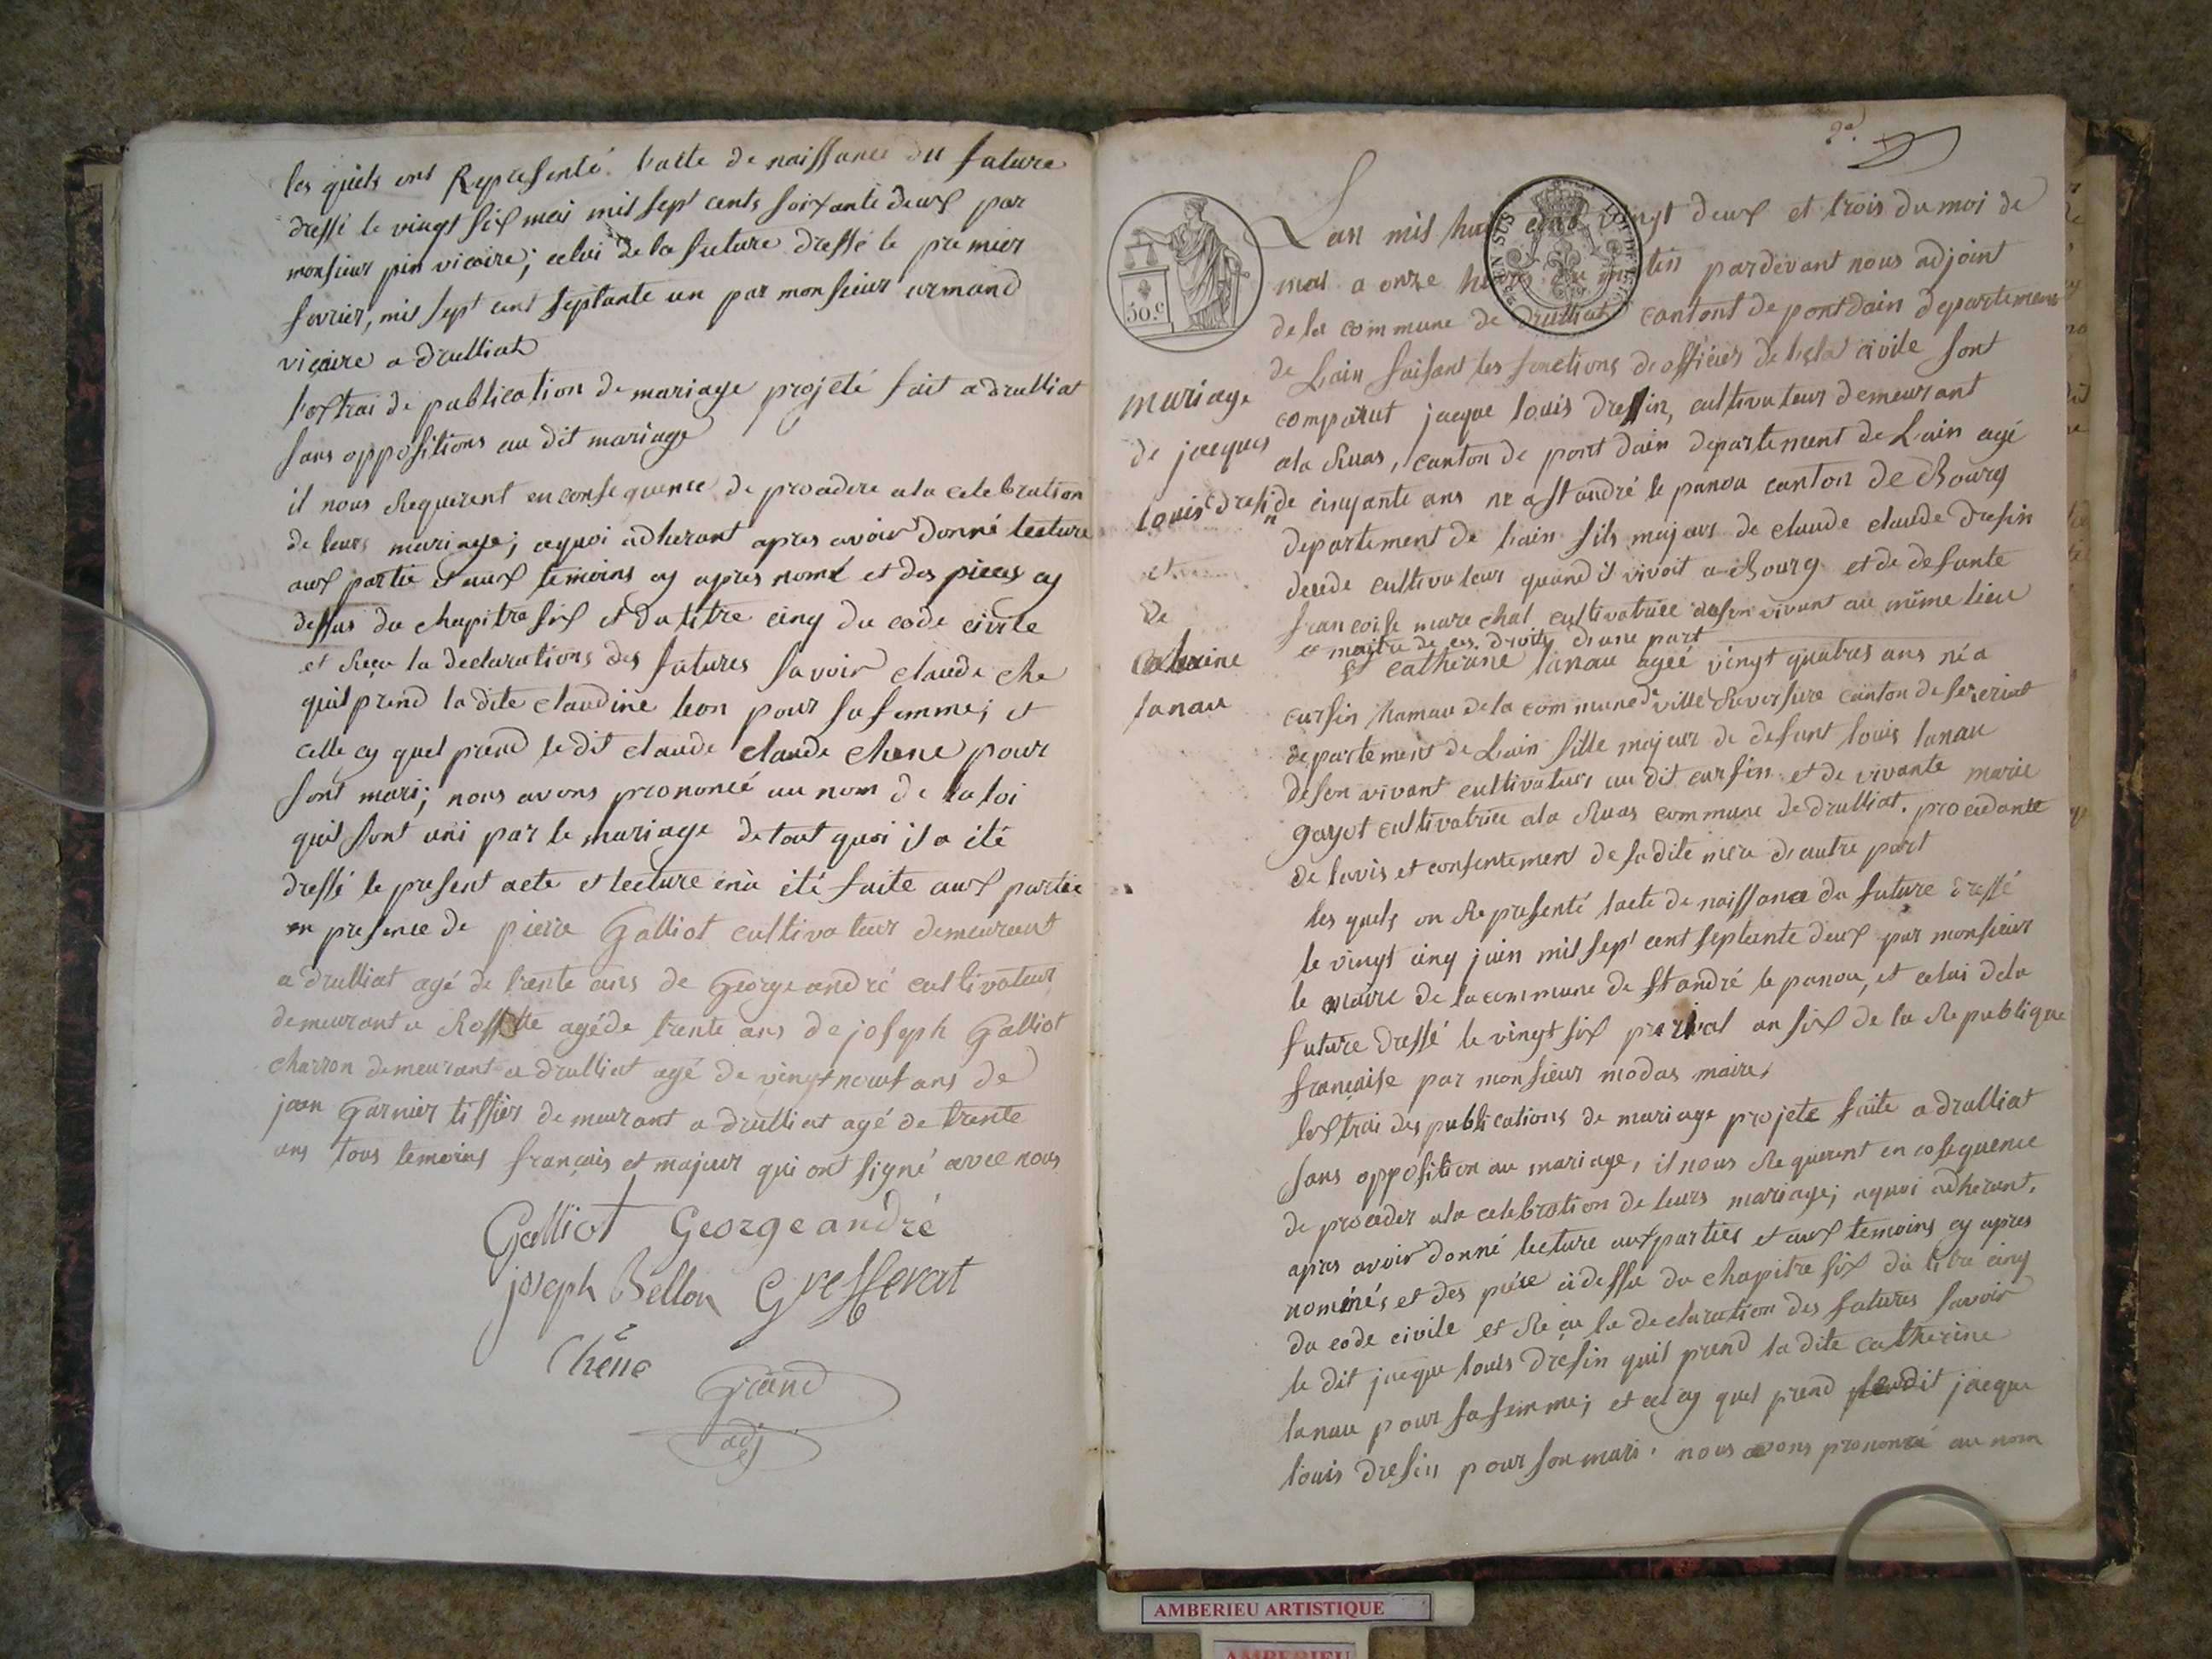 les quels ont Representé l'acte de naissance du future
dressé le vingt six mai mil sept cents soixante deux par
monsieur pin vicaire; celui de la future dressé le premier
fevrier, mil sept cent septante un par monsieur armand
vicaire a drulliat
l'extrai de publication de mariage projeté fait a drulliat
sans oppositions au dit mariage
il nous Requerent en consequence de proceder a la celebration
de leurs mariage; aquoi adherant apres avoir donné lecture
aux partie et aux temoins cy apres nomé et des pieces cy
dessus du chapitre six et du titre cinq du code civile
et Reçu la declarations des futures savoir claude che
quil prend la dite claudine leon pour sa femme; et
celle cy quel prend le dit claude claude chene pour
sont mari; nous avons prononcé au nom de la loi
quil sont uni par le mariage de tout quoi il a été
dressé le present acte et lecture en a été faite aux partie
en presence de pierre Galliot cultivateur demeurant
a drulliat agé de trente ans de George andré cultivateur
demeurant a agé de trente ans de joseph Galliot
charron demeurant a drulliat agé de vingt neuf ans de
jean Garnier tissier demeurant a drulliat agé de trente
ans tous temoins français et majeur qui ont signé avec nous
Galliot George andré
joseph Bellon
Chêne
Grand
adj
2e.
Lan mil huit cent vingt deux et trois du moi de
mai a onze heures du matin pardevant nous adjoint
de la commune de drulliat cantont de pont dain departement
de Lain faisant les fonctions de officier de l'estat civile sont
comparut jacque louis dresin, cultivateur demeurant
a la Ruas, canton de pont dain departement de Lain agé
de cinqante ans né a st andré le panou canton de Bourg
departement de lain fils majeur de claude claude dresin
decede cultivateur quand il vivoit a Bourg et de defunte
francoise marechal cultivatrice de son vivant au même lieu
et maitre de ces droits d'une part
et catherine lanau agee vingt quatres ans né a
cursin hamau de la commune de ville Reversure canton de seseriat
departement de Lain fille majeur de defunt louis lanau
de son vivant cultivateur au dit cursin et de vivante marie
goyot cultivatrice a la Ruas commune de drulliat. procedante
de lavis et consentement de sa dite mere d'autre part
les quels on Representé lacte de naissance du future dressé
le vingt cinq juin mil sept cent septante deux par monsieur
le maire de la commune de st andré le panou, et celui de la
future dressé le vingt six an six de la Republique
française par monsieur modas maire,
lextrai des publications de mariage projeté faite a drulliat
sans opposition au mariage, il nous Requerent en cosequence
de proceder a la celebration de leurs mariage; aquoi adherant.
apres avoir donné lecture aux parties et aux temoins cy apres
nomméés et des piéce ci dessu du chapitre six du titre cinq
du code civile et Reçu la declaration des futures savoir
le dit jacque louis dresin quil prend la dite catherine
lanau pour sa femme; et celle cy quel prend ledit jacque
louis dresin pour son mari. nous avons prononcé au nom
50.c
mariage
de jacques
louis dresin
et
de
Caterine
lanau
AMBERIEU ARTISTIQUE
AMBERIEU